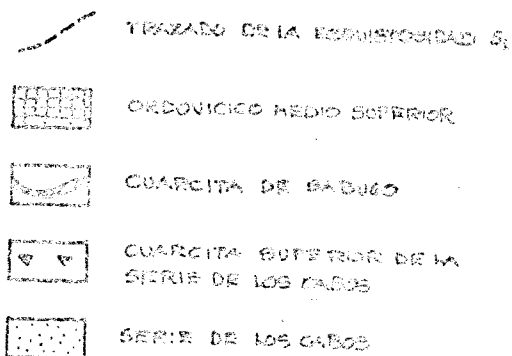 TRAZADO DE LA ESQUISTOSIDAD S₁
ORDOVICICO MEDIO SUPERIOR
CUARCITA DE
CUARCITA SUPERIOR DE LA
SERIE DE LOS CABOS
SERIE DE LOS CABOS